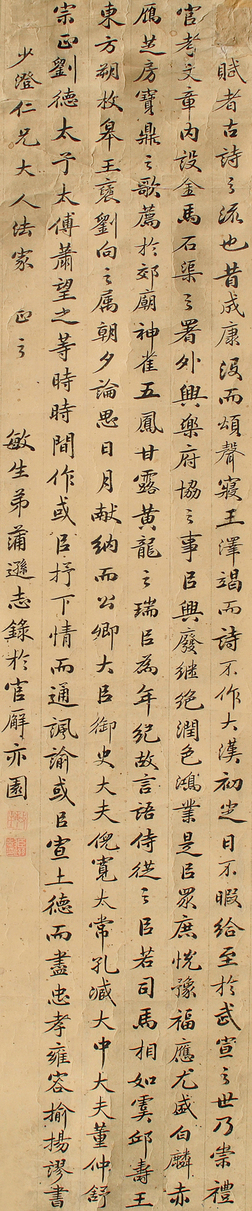 賦者古詩之流也昔成康沒而頌聲寢王澤竭而詩不作大漢初定日不暇給至於武宣之世乃崇禮
官考文章內設金馬石渠之署外興樂府協之事以興廢継絕潤色鴻業是以眾庶悅豫福應尤盛白麟赤
鴈芝房寶鼎之歌薦於郊廟神雀五鳳甘露黃龍之瑞以為年紀故言語侍從之臣若司馬相如虞邱壽王
東方朔枚皋王襃劉向之属朝夕論思日月献納而公卿大臣御史大夫倪寬太常孔臧大中大夫董仲舒
宗正劉德太子太傅蕭望之等時時間作或以抒下情而通諷諭或以宣上德而盡忠孝雍容揄揚謬書
少澄仁兄大人法家 正之 敏生弟蒲遜志錄於官廨亦園